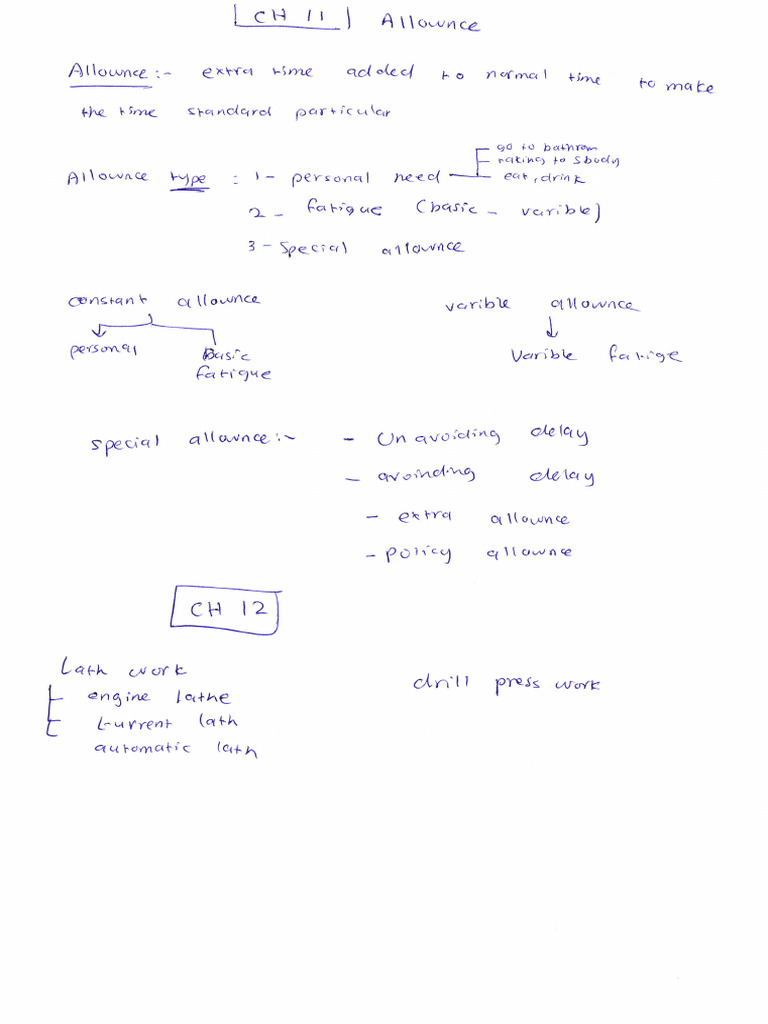 CH 11 Allownce
Allownce :- extra time added to normal time to make
the time standard particular
Allownce type : 1- personal need
go to bathrom
taking to sbody
eat, drink
2 - fatigue (basic - varible)
3 - special allownce
constant allownce
varible allownce
personal
basic
fatigue
varible fatige
special allownce :- - Un avoiding delay
- avoinding delay
- extra allownce
- policy allownce
CH 12
Lath work
drill press work
engine lathe
t-urrent lath
automatic lath